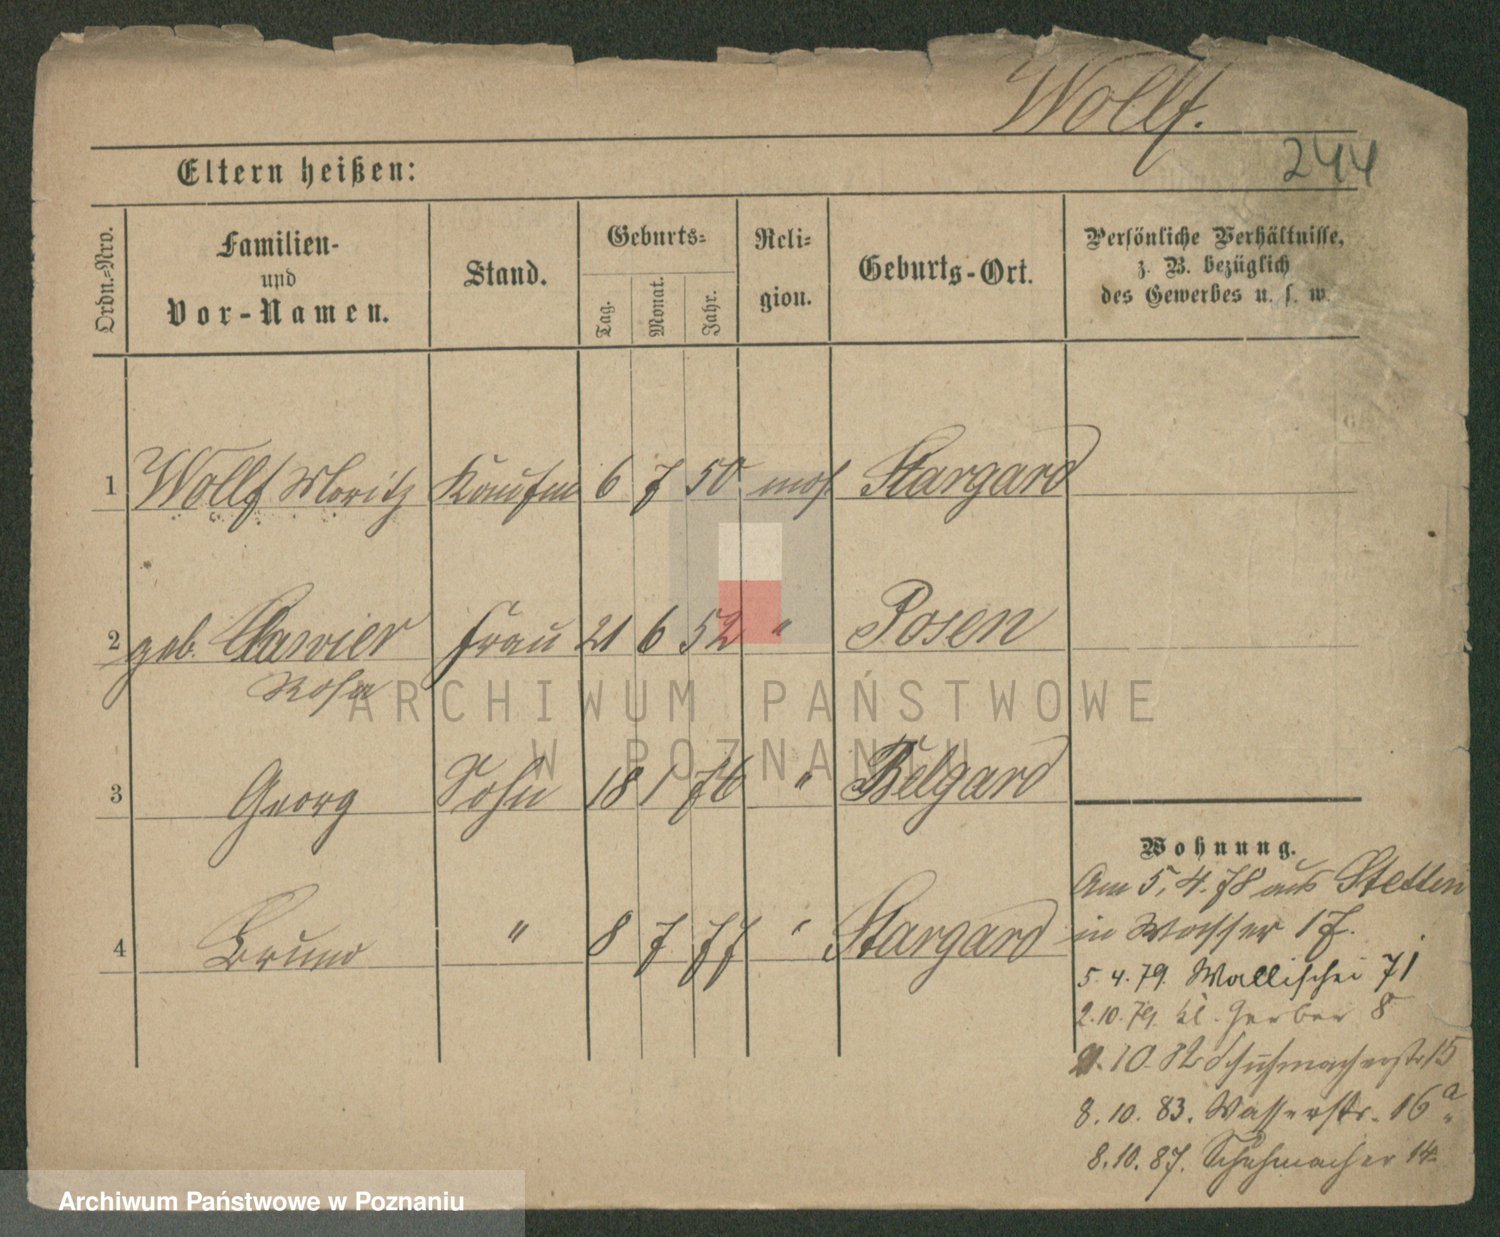 Wollf.
244
Eltern heißen:
Ordn.-Nro.
Familien-
und
Vor-Namen.
Stand.
Geburts-
Tag.
Monat.
Jahr.
Reli-
gion.
Geburts-Ort.
Persönliche Verhältnisse,
z. B. bezüglich
des Gewerbes u. s. w.
1 Wollf Moritz Kaufm 6 7 50 mos Stargard
2 geb. Frau 21 6 52 " Posen
Rosa
3 Georg Sohn 18 1 76 " Belgard
4 Bruno " 8 7 77 " Stargard
Wohnung.
Am 5. 4. 78 aus Stettin
in Wasser 17.
5. 4. 79. Wallischei 71
2. 10. 79. kl. Gerber 8
10. 82 Schuhmacherstr 15
8. 10. 83. Wasserstr. 16 a
8. 10. 87. Schuhmacher 14
ARCHIWUM PAŃSTWOWE
W POZNANIU
Archiwum Państwowe w Poznaniu